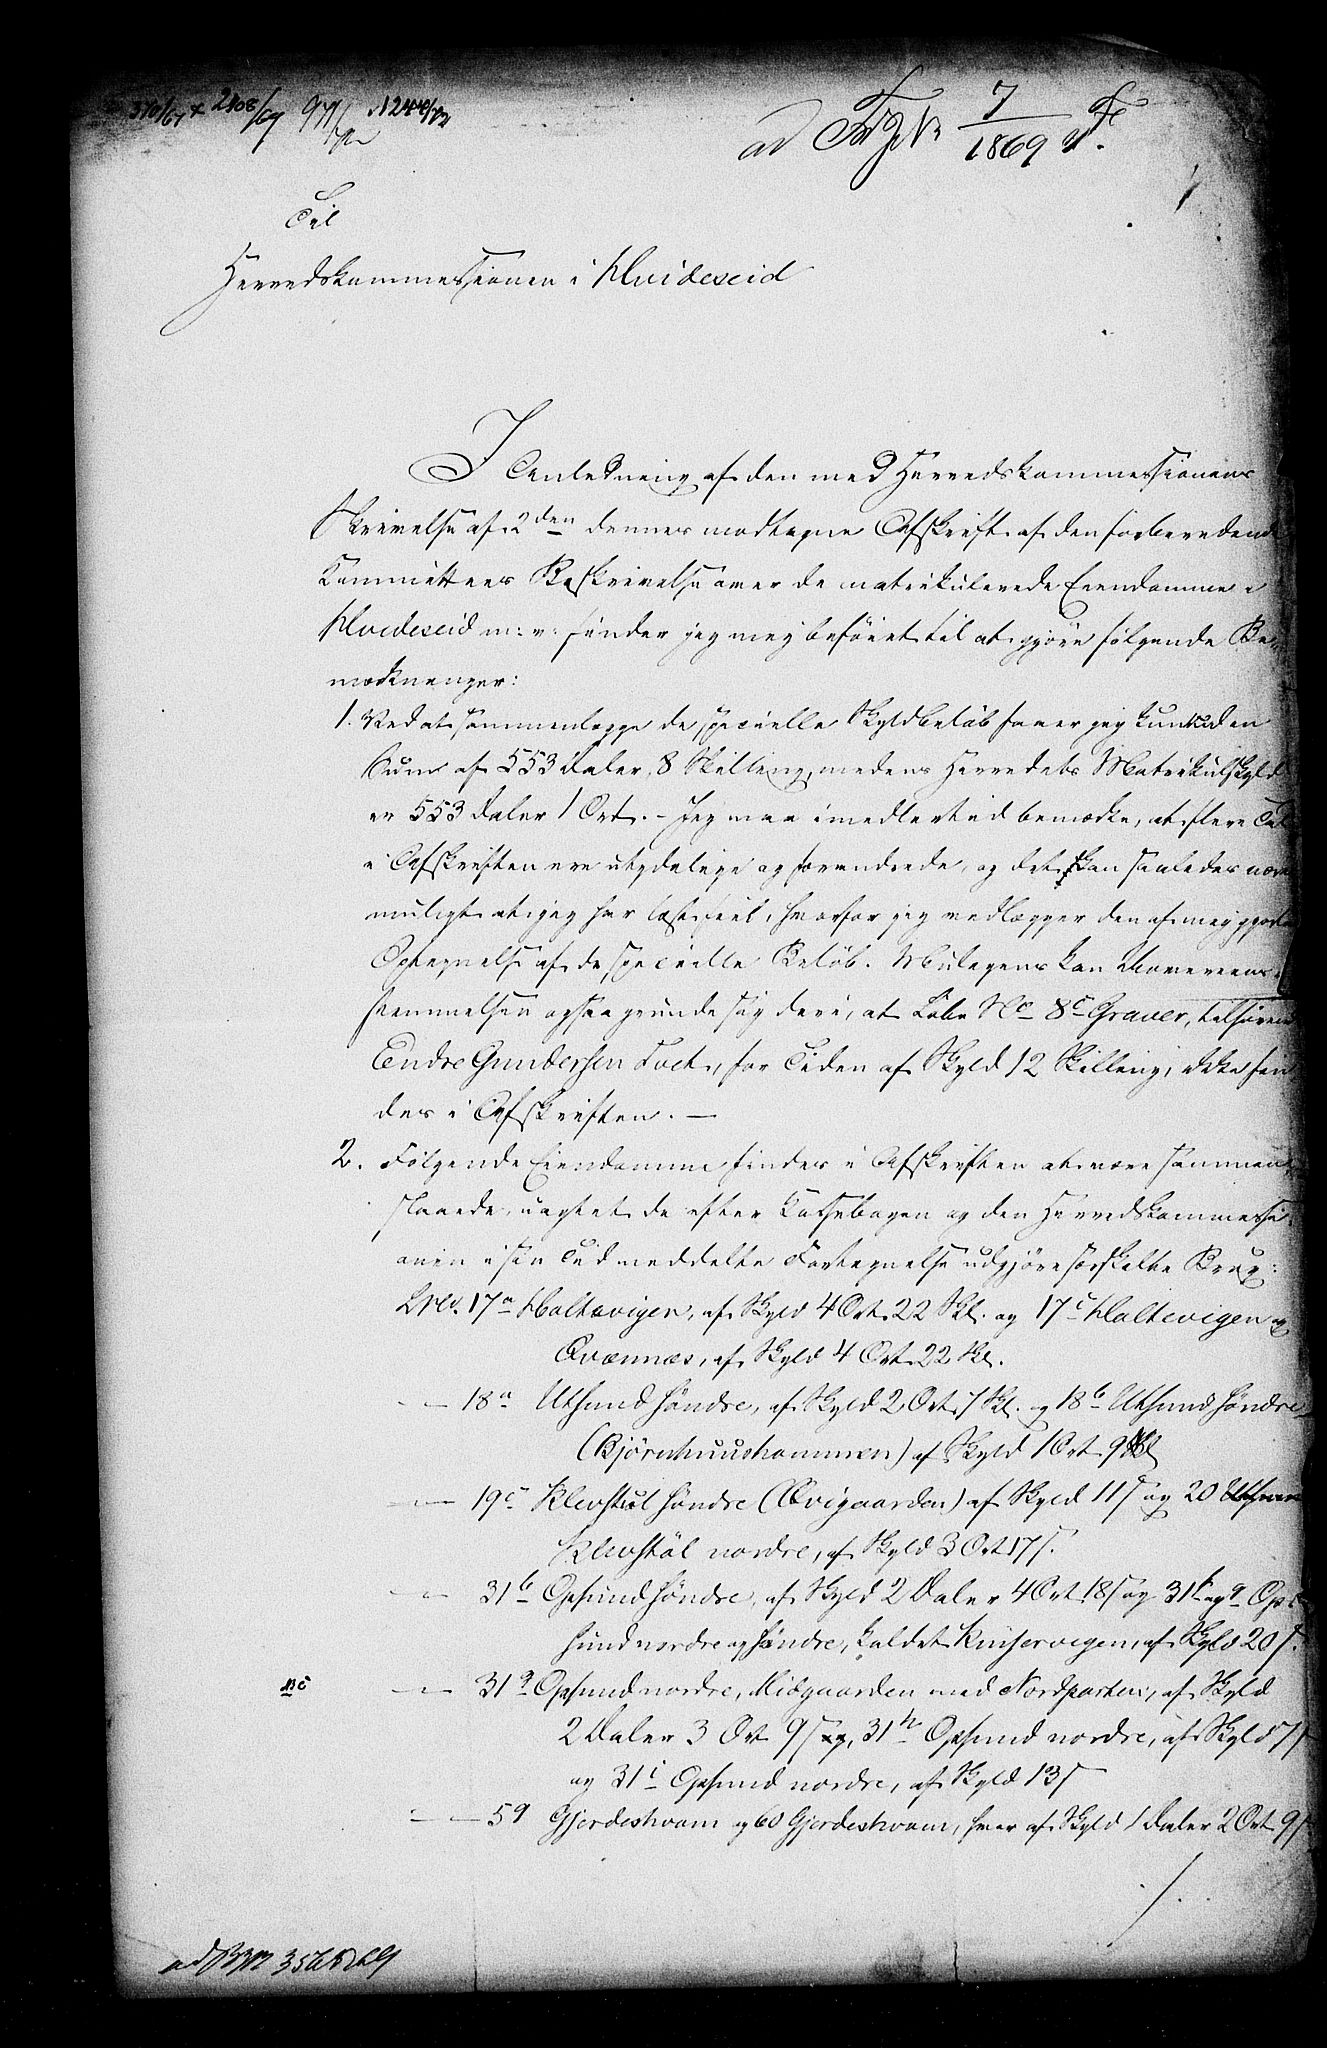 310/67 + 2108/69
ad 7/1869
Til
Herredskommissionen i Hvideseid
I Anledning af den med Herredskommissionens
Skrivelse af 2den dennes modtagne Afskrift af den forberedende
Kommittees Beskrivelse over de matrikulerede Eiendomme i
Hvideseid m: v: finder jeg mig beføiet til at gjøre følgende Be-
mærkninger:
1. Ved at sammenlægge de specielle Skyldbeløb faaer jeg kun den
Sum af 553 Daler, 8 Skilling, medens Herredets Matrikulskyld
er 553 Daler 1 Ort. – Jeg maa imedlertid bemærke, at flere Tal
i Afskriften ere utydelige og forandrede, og det kan saaledes være
muligt at jeg har læst feil, hvorfor jeg vedlægger den af mig gjorte
Optegnelse af de specielle Beløb. Muligens kan Uoverens-
stemmelsen ogsaa grunde sig deri, at Løbe No 8c Graver, tilhørende
Endre Gundersen Tveit, for Tiden af Skyld 12 Skilling, ikke fin
des i Afskriften. –
2. Følgende Eiendomme findes i Afskriften at være sammen-
slaaede, uagtet de efter Kassebogen og den Herredskommissi
onen i sin Tid meddelte Fortegnelse udgjøre særskilte Brug:
LNo. 17a Holtevigen, af Skyld 4 Ort 22 Sk. og 17c Holtevigen og
Qvænnæs, af Skyld 4 Ort 22 Sk.
— 18a Utsund søndre, af Skyld 2 Ort 7 Sk. og 18b Utsund søndre
(Bjørnhuushammeren) af Skyld 1 Ort 9 Sk
— 19c Klevstøl søndre (Øvigaarden) af Skyld 11 s og 20
Klevstøl nordre, af Skyld 3 Ort 17 s.
— 31b Opsund søndre, af Skyld 2 Daler 4 Ort 18 s og 31k og q Op
sund nordre og søndre, kaldet Kinservigen, af Skyld 20 s.
— 31g Opsund nordre, Midgaarden med Nordparten, af Skyld
2 Daler 3 Ort 9 s, 31h Opsund nordre, af Skyld 7 s
og 31i Opsund nordre, af Skyld 13 s
— 59 Gjerdeshvam og 60 Gjerdeshvam, hver af Skyld 1 Daler 2 Ort 9 s
./.